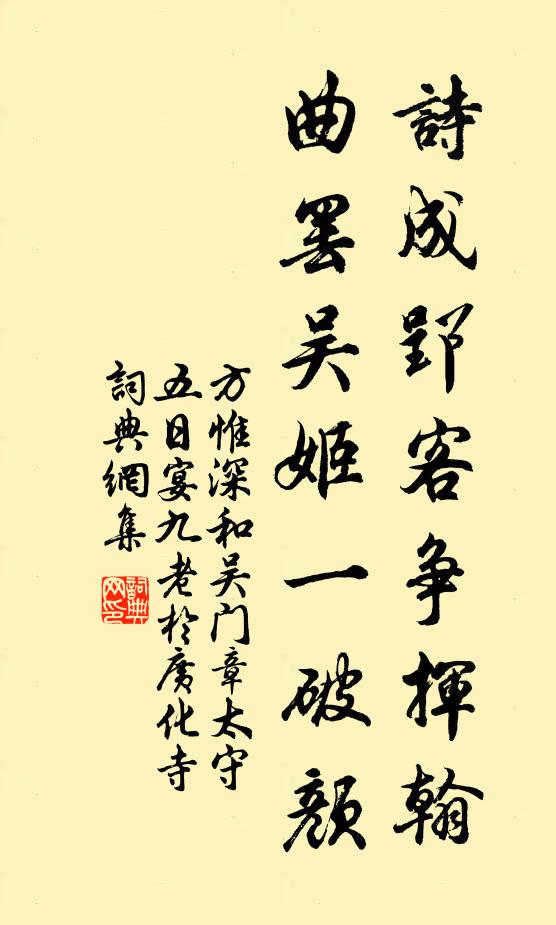 詩成郢客争揮翰
曲罷吴姬一破顔
方惟深和吴门章太守
五日宴九老於廣化寺
詞典網集
詞典
网印